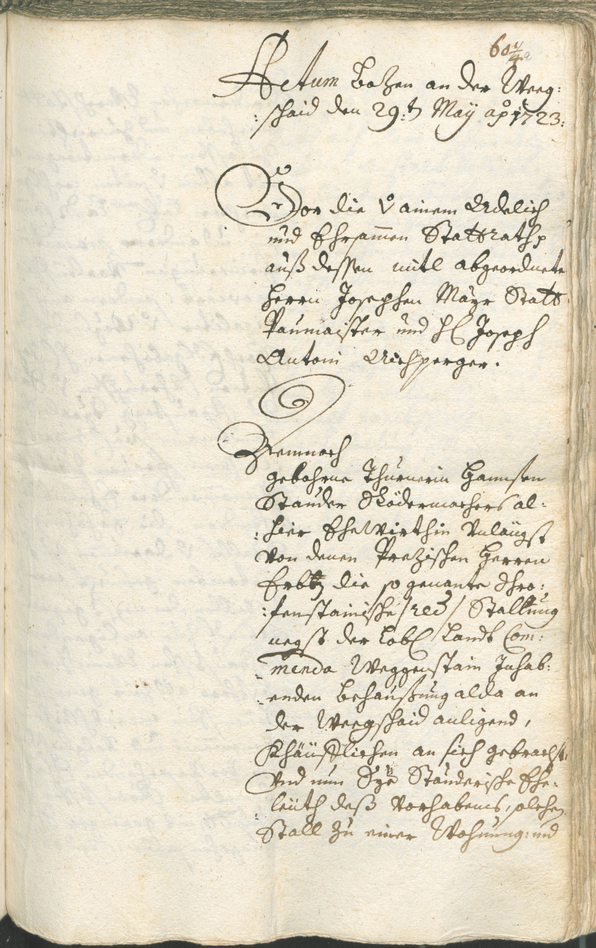 Actum Bozen an der Weeg:
:schaid den 29:t May ao 1723:
Vor die V ainem Adelich
und Ehrsammen Stattrath p
auß dessen mitl abgeordnete
Herrn Josephen Mayr Statt
Paumaister und H: Joseph
Antoni Aichperger.
Demnach
gebohrne Thurnerin Hannsen
Stauder Rödermachers al:
:hier Ehewirthin unlängst
von denen Prezischen Herren
Erben die so genante
:fenstainische /red/ Stallung
negst der Lobl: Landt Com:
menda Weggenstain Inhab:
:enden behaußung alda an
der Weegschaid anligend,
Khäufflichen an sich gebracht,
Vnd nun Sye Stauderische Ehe:
leüth deß vorhabens, solchen
Stall zu einer Wohnung: und